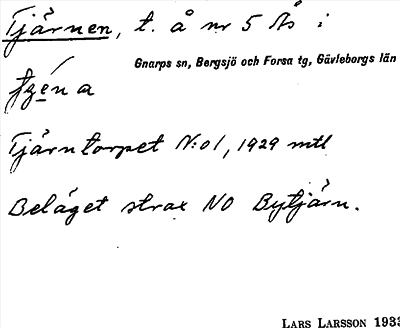 Tjärnen, t. å nr 5 Ås i
Gnarps sn, Bergsjö och Forsa tg, Gävleborgs län
Tjärntorpet N:o1, 1929 mtl
Beläget strax NO Bytjärn.
LARS LARSSON 1933